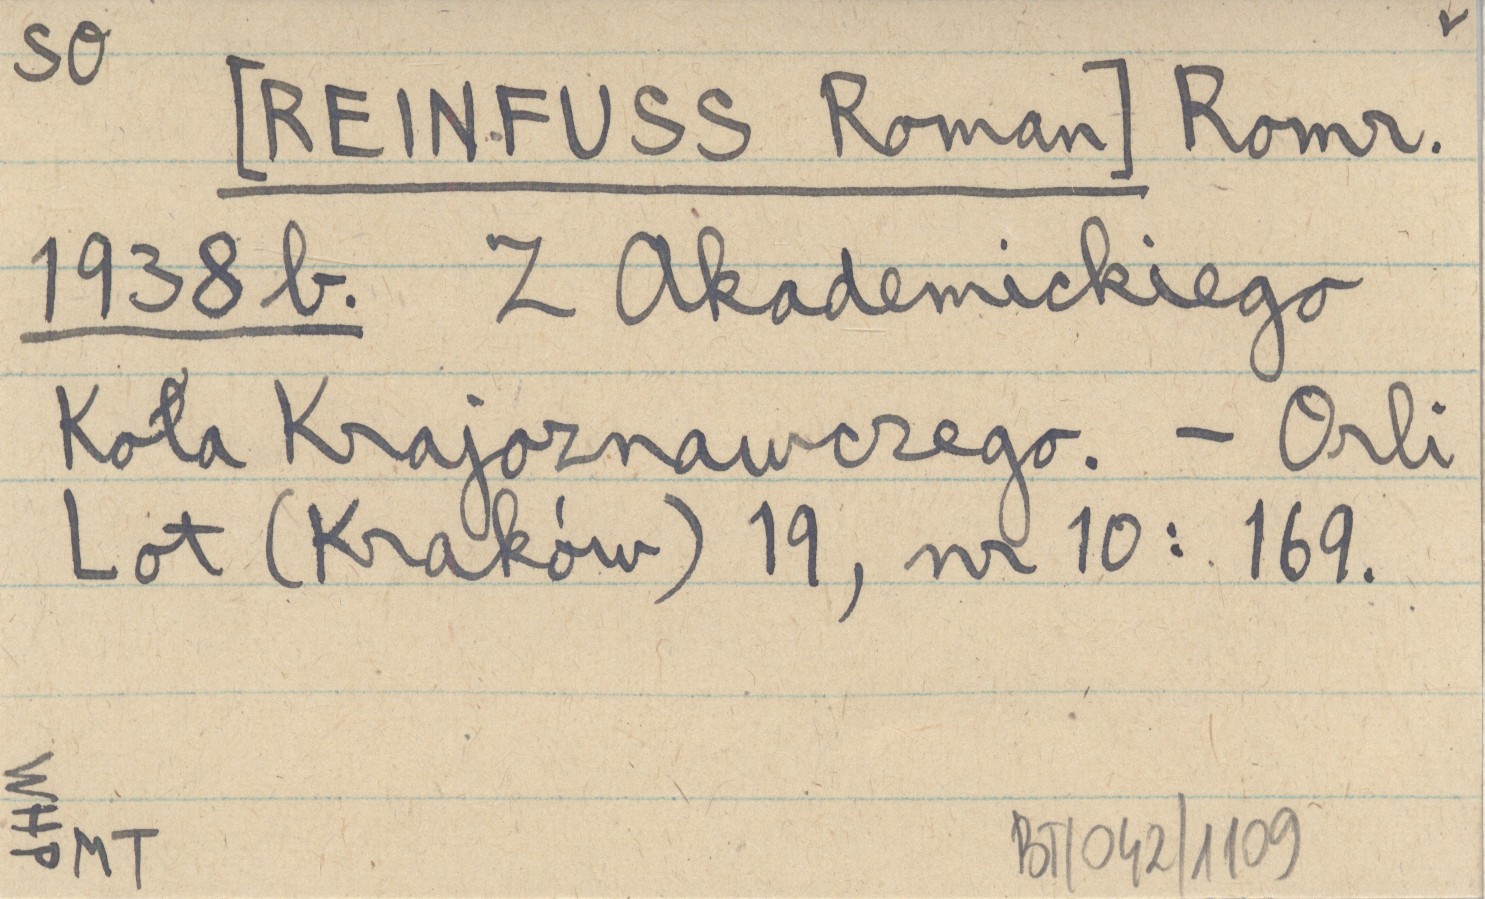 SO
[REINFUSS Roman] Romr.
1938 b. Z Akademickiego
Koła Krajoznawczego. – Orli
Lot (Kraków) 19, nr 10: 169.
WHP
MT
BT/042/1109